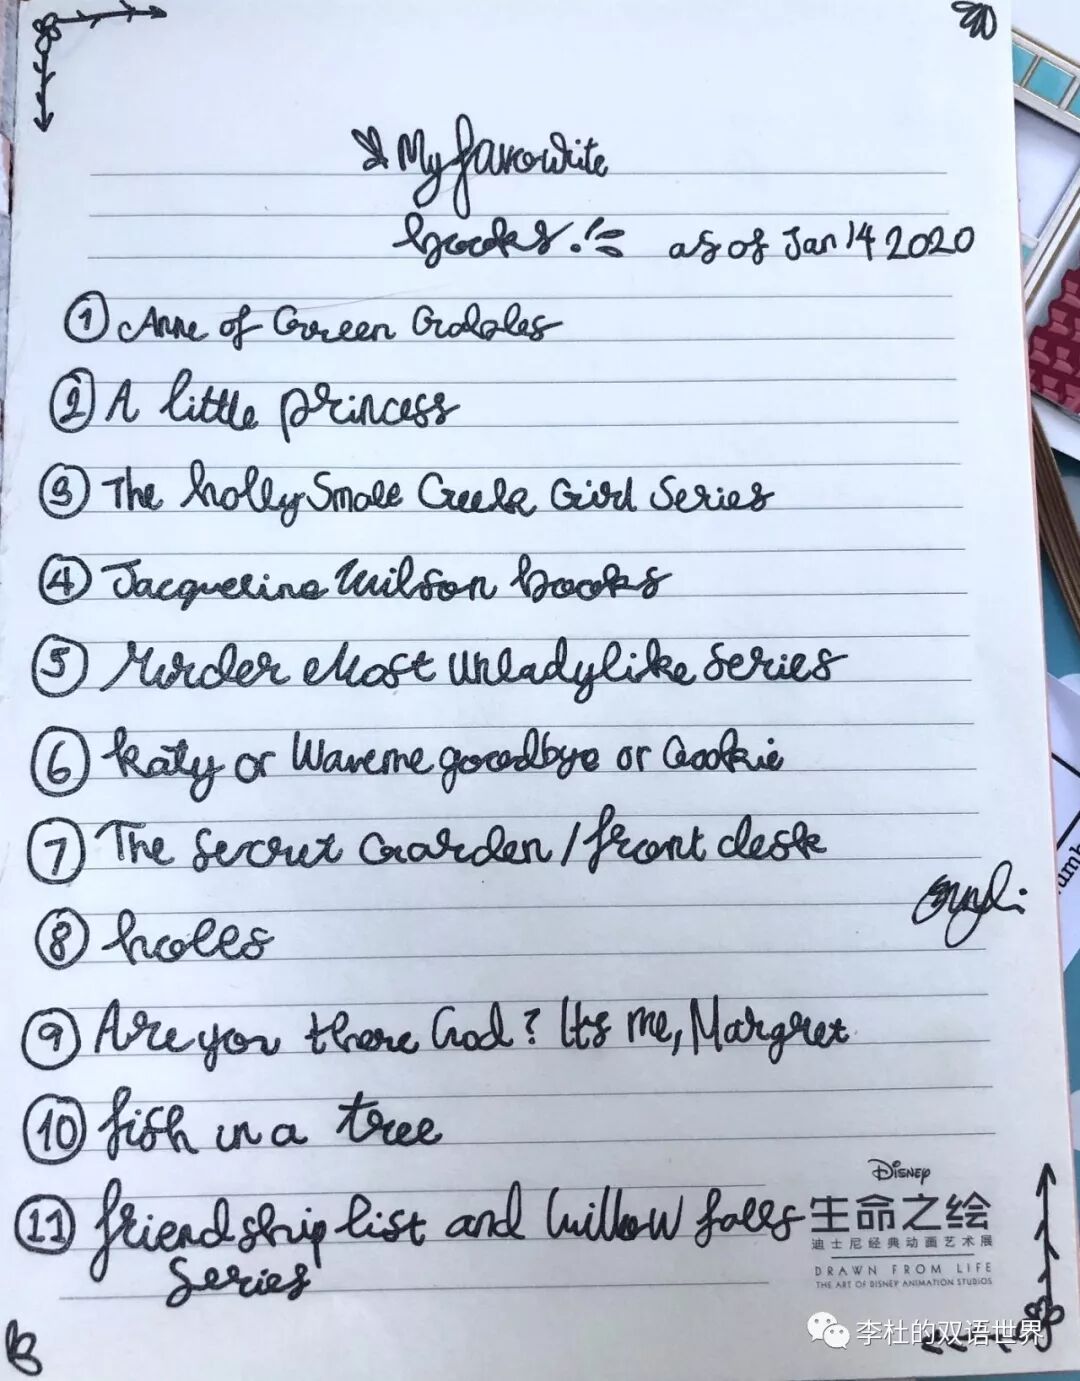 My favowite
books! as of Jan 14 2020
① Anne of Green Gables
② A little princess
③ The holly Smale Geek Girl Series
④ Jacqueline Wilson books
⑤ Murder Most Unladylike Series
⑥ Katy or Wave me goodbye or Cookie
⑦ The Secret Garden / front desk
⑧ holes
⑨ Are you there God? Its me, Margret
⑩ fish in a tree
⑪ friendship list and Willow falls
Series
DISNEY
生命之绘
迪士尼经典动画艺术展
DRAWN FROM LIFE
THE ART OF DISNEY ANIMATION STUDIOS
李杜的双语世界